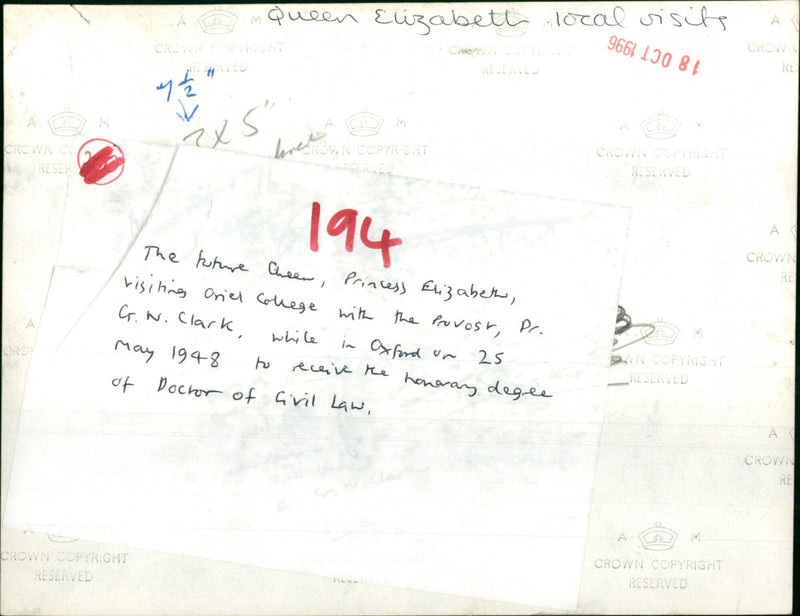 Queen Elizabeth local visits
18 OCT 1996
4 1/2"
2 X 5"
194
The future Queen, Princess Elizabeth,
visiting Oriel College with the Provost, Dr.
G. N. Clark, while in Oxford on 25
May 1948 to receive the honorary degree
of Doctor of Civil Law.
A M
CROWN COPYRIGHT
RESERVED